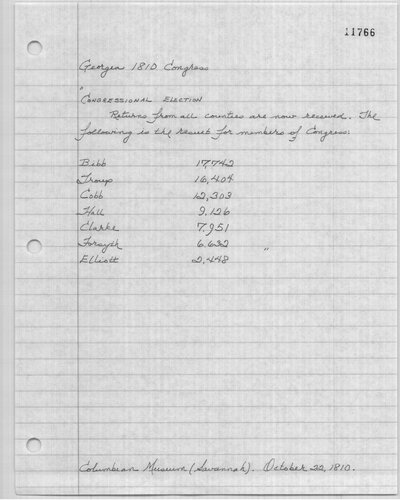 11766
Georgia 1810 Congress
"
CONGRESSIONAL ELECTION
Returns from all counties are now received. The
following is the result for members of Congress:
Bibb 17,742
Troup 16,404
Cobb 12,303
Hall 9,126
Clarke 7,951
Forsyth 6,632 "
Elliott 2,448
Columbian Museum (Savannah). October 22, 1810.